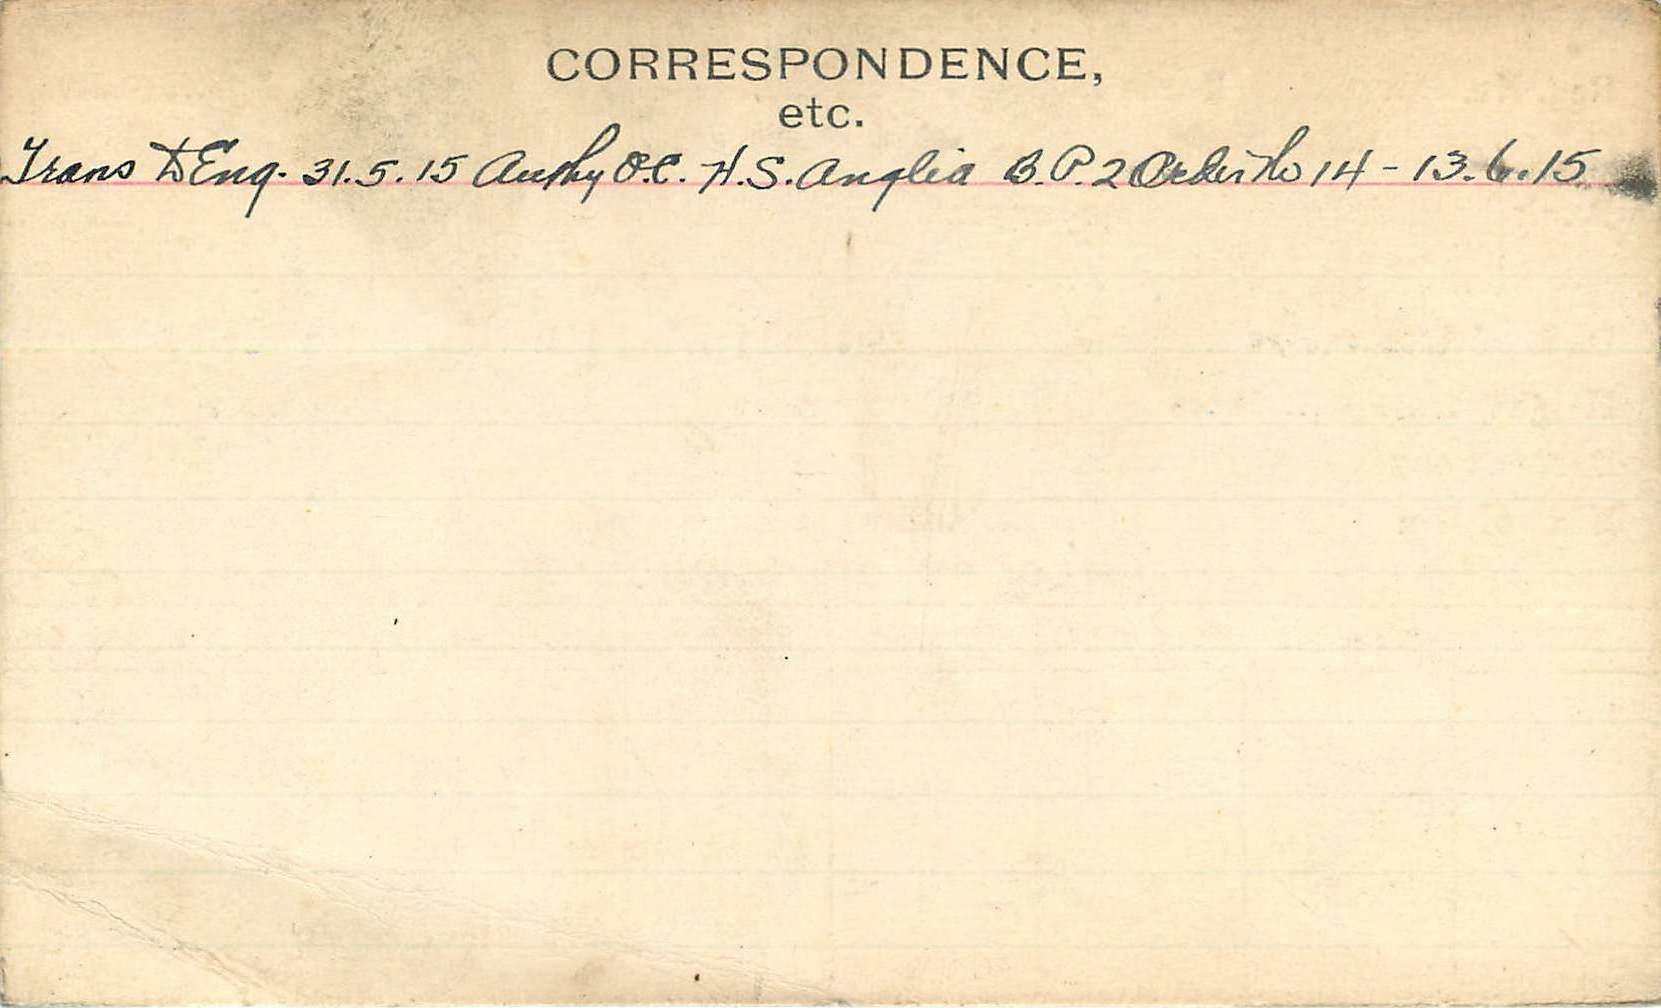 CORRESPONDENCE,
etc.
Trans to Eng. 31.5.15 Authy O.C. H.S. Anglia B.P.2 Order No 14 - 13.6.15